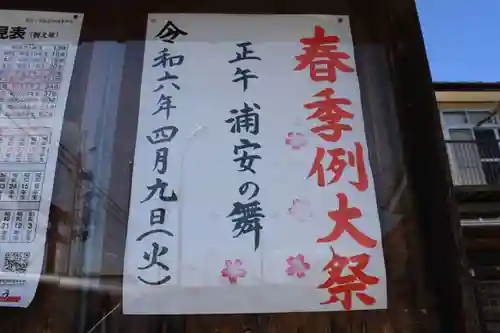 春季例大祭
正午 浦安の舞
令和六年四月九日(火)
見表